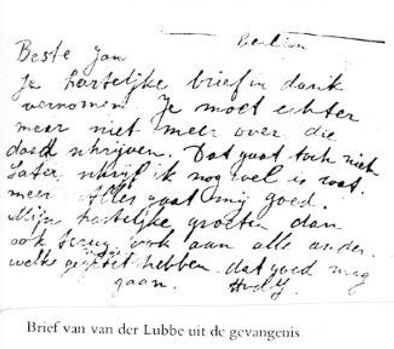 Berlin
Beste Jan
Je hartelijke brief in dank
vernomen. Je moet echter
maar niet meer over die
daad schrijven. Dat gaat toch niet
Later schrijf ik nog wel is wat.
meer Alles gaat mij goed.
Mijn hartelijke groeten dan
ook terug ook aan alle ander.
welke hebben. dat goed mag
gaan.
Brief van van der Lubbe uit de gevangenis